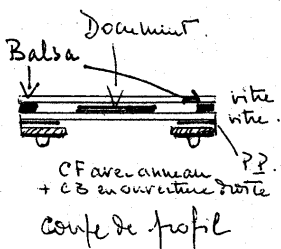 Document.
Balsa
vitre
vitre.
P.P.
CF avec anneau
+ CB en ouverture droite
coupe de profil